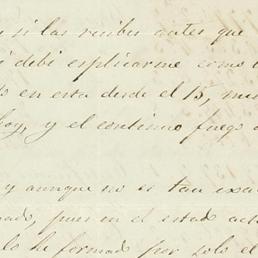 si las recibes antes que
debi explicarme como
en esta desde el 15,
hoy, y el continuo fuego
y aunque no es tan
pues en el estado
lo he formado por solo el